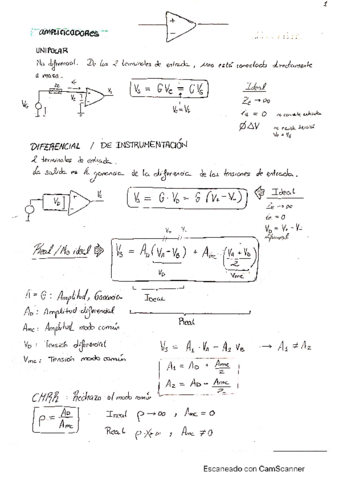 1
AMPLIFICADORES
UNIPOLAR
No diferencial. De los 2 terminales de entrada, uno está conectado directamente
a masa.
V₀ = G Vₑ = G V₀
Ideal
Zₑ → ∞
DIFERENCIAL / DE INSTRUMENTACIÓN
2 terminales de entrada.
La salida es la ganancia de la diferencia de las tensiones de entrada.
Vₛ = G · V_D = G (V₊ - V₋)
Ideal
V_D = V₊ - V₋
Real / No ideal
Vₛ = A_D (V_A - V_B) + A_mc (V_A + V_B)/2
V_D
V_mc
Ideal
Real
A = G: Amplitud, Ganancia
A_D: Amplitud diferencial
A_mc: Amplitud modo común
V_D: Tensión diferencial
V_mc: Tensión modo común
Vₛ = A₁ · V_A - A₂ V_B → A₁ ≠ A₂
A₁ = A_D + A_mc/2
A₂ = A_D - A_mc/2
CMRR: Rechazo al modo común
ρ = A_D/A_mc
Ideal ρ → ∞, A_mc = 0
Real, A_mc ≠ 0
Escaneado con CamScanner